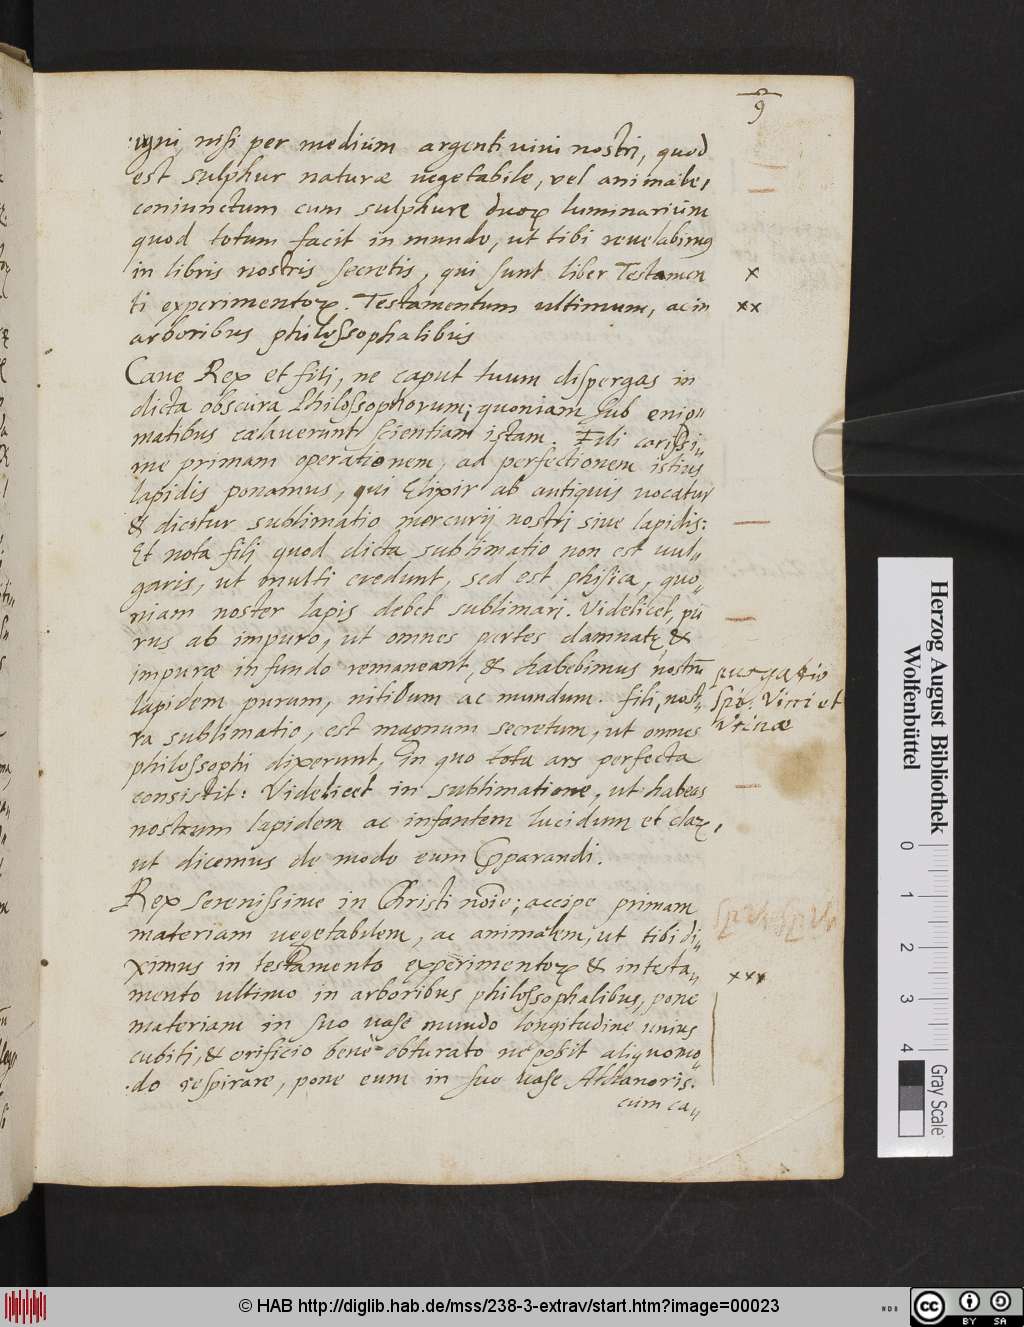 9
igni nisi per medium argenti vivi nostri, quod
est sulphur naturæ vegetabile, vel animale,
coniunctum cum sulphure duoꝝ luminarium
quod totum facit in mundo, ut tibi revelabimus
in libris nostris secretis, qui sunt liber Testamen
ti experimentoꝝ. Testamentum ultimum, ac in
arboribus philossophalibus
Cave Rex et fili, ne caput tuum dispergas in
dicta obscura Philossophorum; quoniam sub enig„
matibus cælaverunt scientiam istam. Fili carissi„
me primam operationem, ad perfectionem istius
lapidis ponamus, qui Elixir ab antiquis vocatur
& dicitur sublimatio mercurij nostri sive lapidis:
Et nota fili quod dicta sublimatio non est vul„
garis, ut multi credunt, sed est phisica, quo„
niam noster lapis debet sublimari. Videlicet, pu
rus ab impuro, ut omnes partes damnatę &
impuræ in fundo remaneant, & habebimus nostrū
lapidem purum, nitidum ac mundum. fili, nost„
ra sublimatio, est magnum secretum, ut omnes
philossophi dixerunt, in quo tota ars perfecta
consistit: Videlicet in sublimatione, ut habeas
nostrum lapidem ac infantem lucidum et claꝝ,
ut dicemus de modo eum Cparandi.
Rex Serenissime in Christi noīe; accipe primam
materiam vegetabilem, ac animalem, ut tibi di„
ximus in testamento experimentoꝝ & in testa„
mento ultimo in arboribus philossophalibus, pone
materiam in suo vase mundo longitudine unius
cubiti, & orificio bene obturato ne possit aliquomo„
do respirare, pone eum in suo vase Athanoris.
cum ca„
x
xx
purgatio
Spõ: Vini et
Urinæ
xxx
Herzog August Bibliothek
Wolfenbüttel
0 1 2 3 4
Gray Scale
© HAB http://diglib.hab.de/mss/238-3-extrav/start.htm?image=00023
cc BY SA